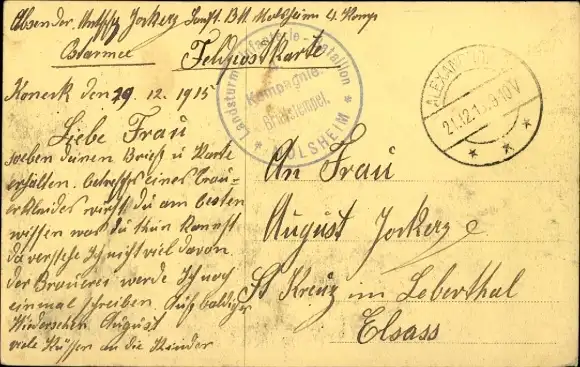 Absender. August Jockerz Landst. Btl Molsheim 4. Komp
Feldpostkarte
Landsturm-Infanterie-Bataillon
MOLSHEIM
Kompagnie.
Briefstempel.
ALEXANDROWO
21.12.15. 9-10V
Koneck den 29. 12. 1915
Liebe Frau
soeben deinen Brief u Karte
erhalten. betreffs eines Trau-
erkleides wirst du am besten
wissen was du thun kannst
da verstehe ich nicht viel davon.
der Brauerei werde Ich noch
einmal schreiben. Auf baldiges
Wiedersehen August
viele Küssen an die Kinder
An Frau
August Jockerz
St Kreuz im Leberthal
Elsass